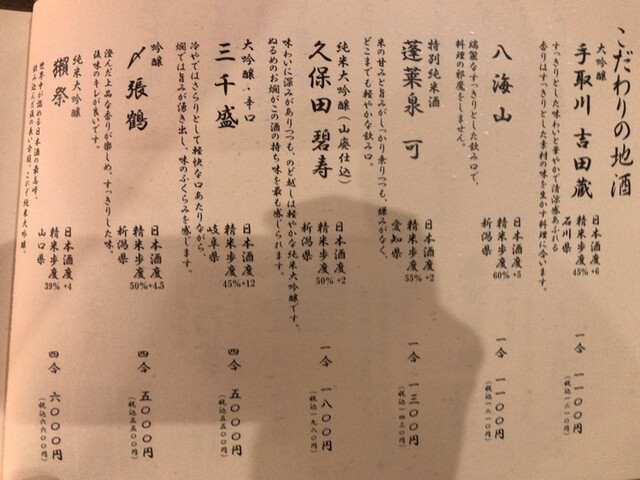 こだわりの地酒
大吟醸
手取川 吉田蔵
すっきりとした味わいと華やかで清涼感あふれる
香りはすっきりとした素材の味を生かす料理に合います。
石川県
精米歩合 45%
日本酒度 +6
一合 一一〇〇円
(税込一二一〇円)
八海山
端麗なすっきりとした飲み口で、
料理の邪魔をしません。
新潟県
精米歩合 60%
日本酒度 +5
一合 一一〇〇円
(税込一二一〇円)
特別純米酒
蓬莱泉 可
米の甘みと旨みがしっかり乗りつつも、嫌みがなく、
どこまでも軽やかな飲み口。
愛知県
精米歩合 55%
日本酒度 +2
一合 一三〇〇円
(税込一四三〇円)
純米大吟醸(山廃仕込)
久保田 碧寿
味わいに深みがありつつも、のど越しは軽やかな純米大吟醸です。
ぬるめのお燗がこの酒の持ち味を最も感じられます。
新潟県
精米歩合 50%
日本酒度 +2
一合 一八〇〇円
(税込一九八〇円)
大吟醸・辛口
三千盛
冷やではさらりとして軽快な口あたりながら、
燗では旨みが湧き出し、味のふくらみを感じます。
岐阜県
精米歩合 45%
日本酒度 +12
四合 五〇〇〇円
(税込五五〇〇円)
吟醸
〆張鶴
澄んだ上品な香りが楽しめ、すっきりした味。
後味のキレが良いです。
新潟県
精米歩合 50%
日本酒度 +4.5
四合 五〇〇〇円
(税込五五〇〇円)
純米大吟醸
獺祭
世界中が認める日本酒の最高峰。
飲み込んだ後の長い余韻、これぞ純米大吟醸。
山口県
精米歩合 39%
日本酒度 +4
四合 六〇〇〇円
(税込六六〇〇円)